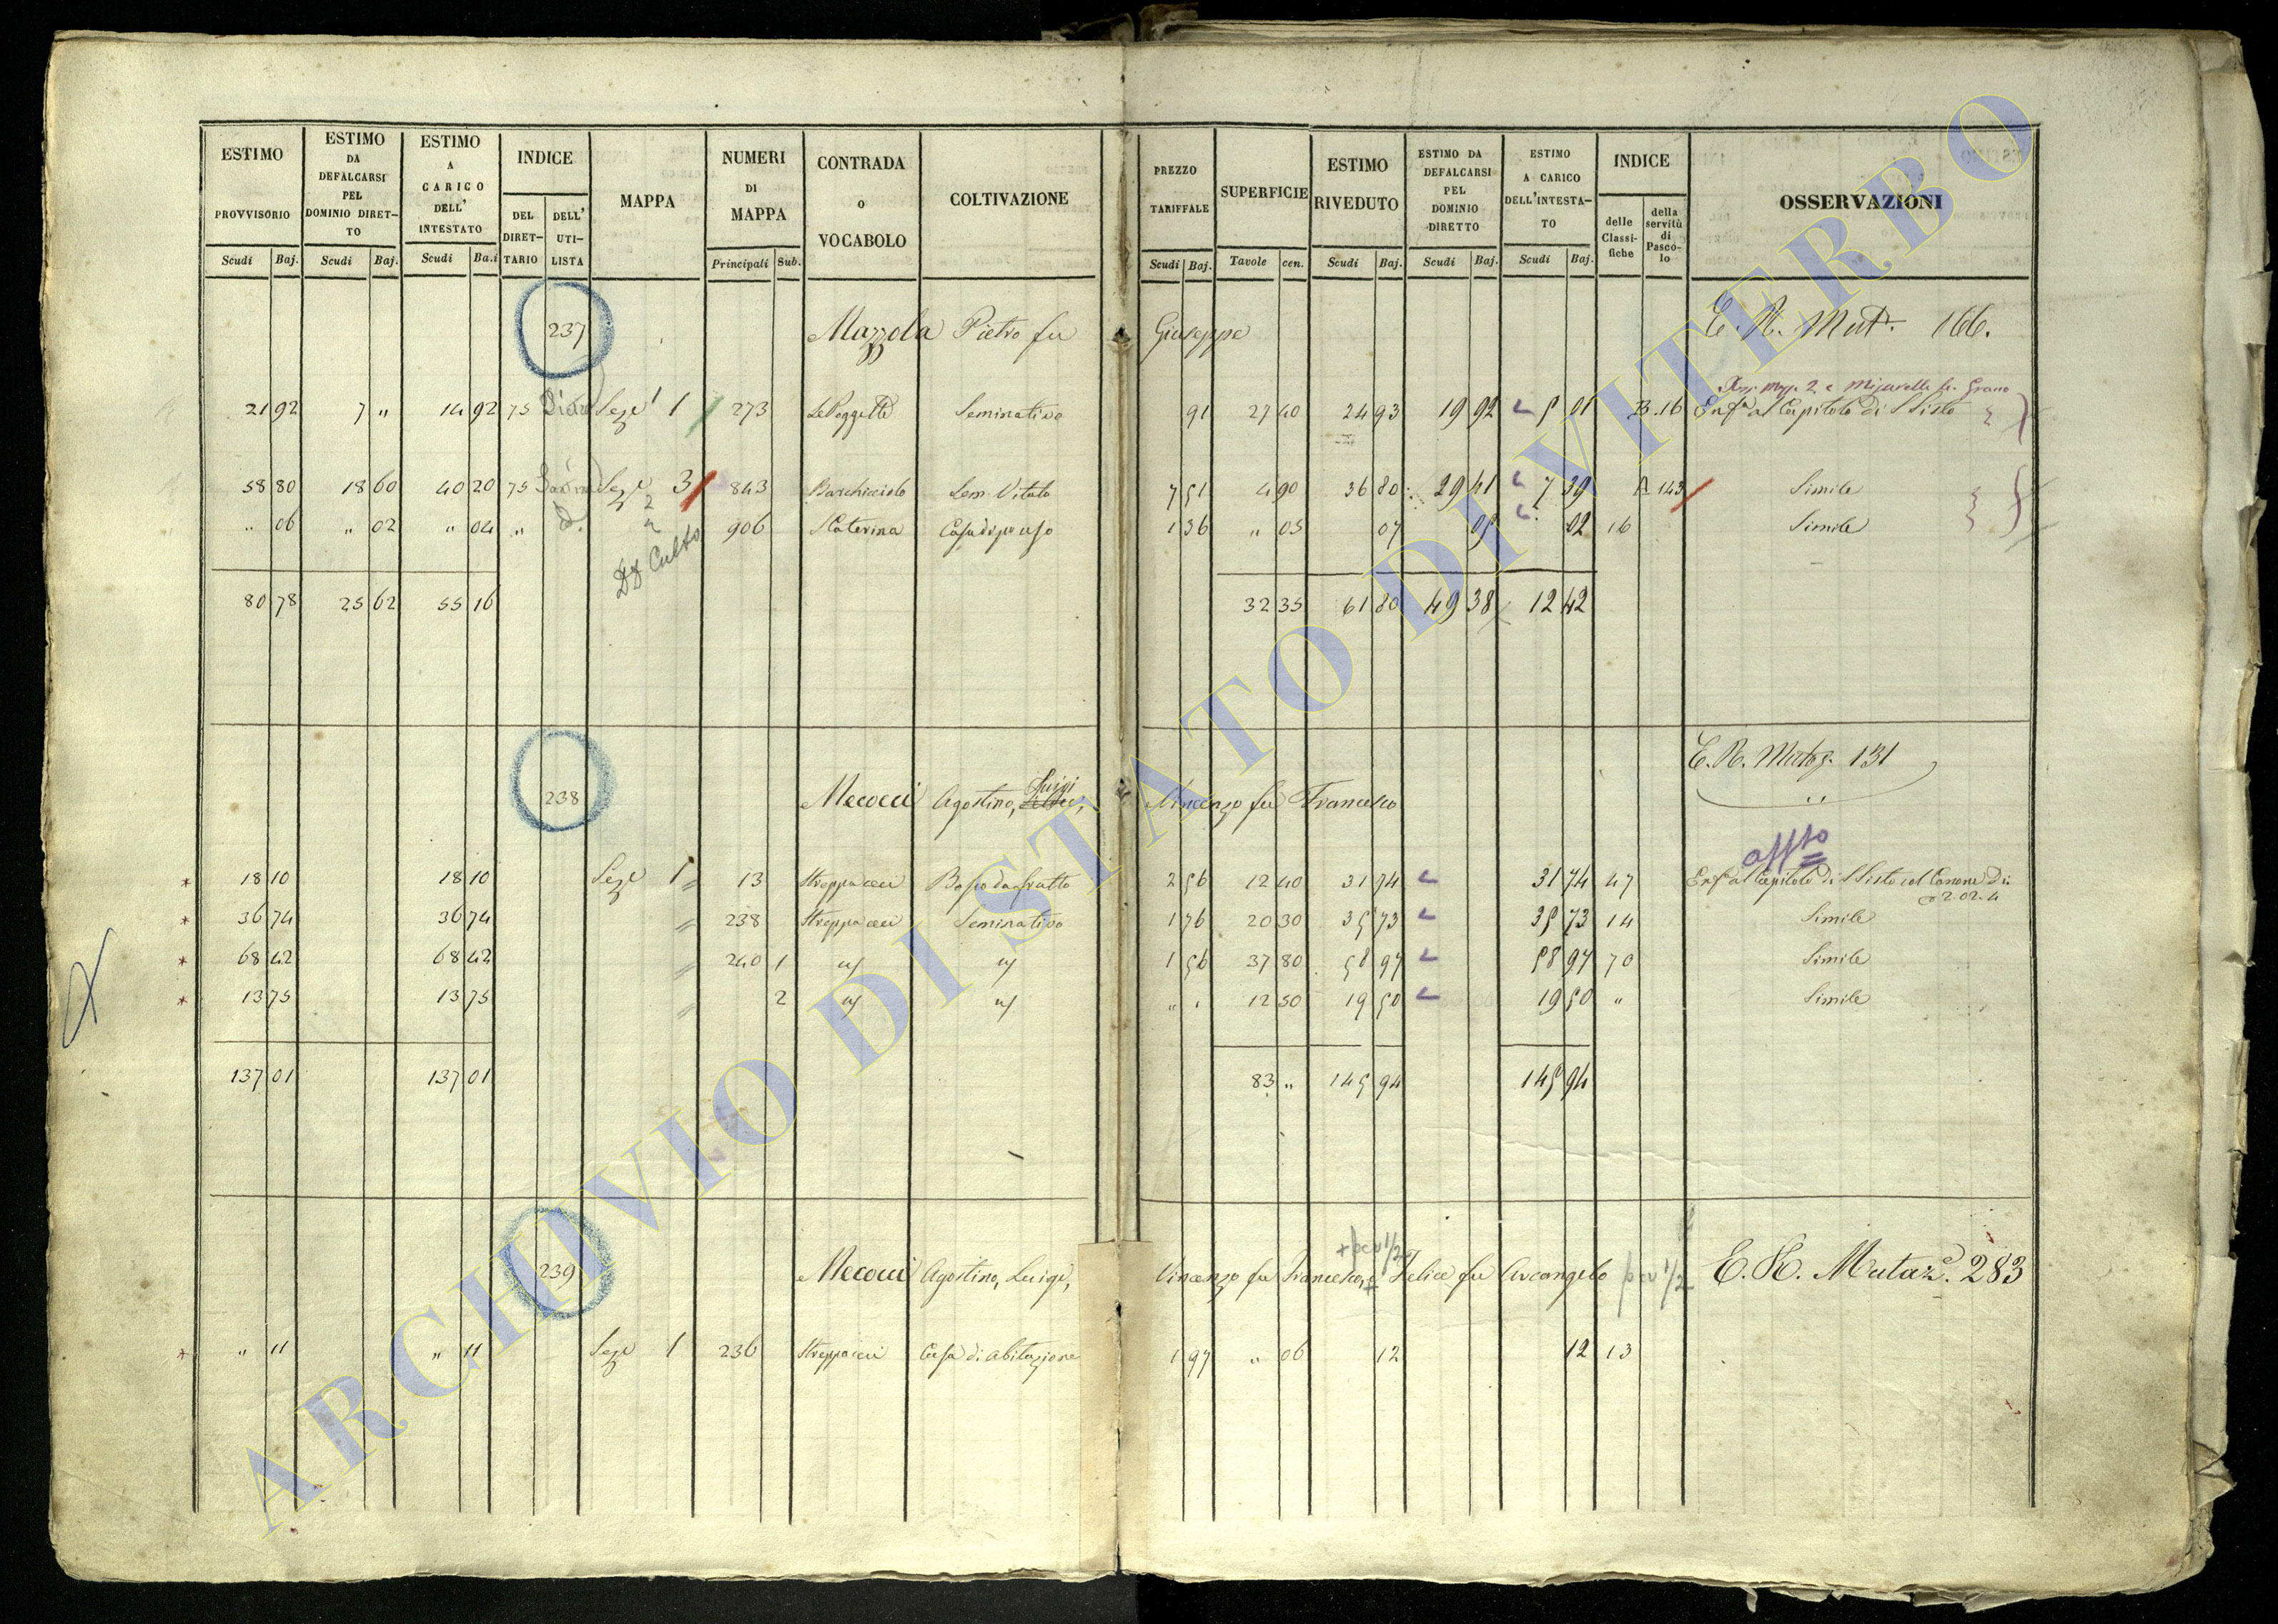 ESTIMO PROVVISORIO Scudi Baj. | ESTIMO DA DEFALCARSI PEL DOMINIO DIRET- TO Scudi Baj. | ESTIMO A CARICO DELL' INTESTATO Scudi Ba.i | INDICE DEL DIRET- TARIO DELL' UTI- LISTA | MAPPA | NUMERI DI MAPPA Principali Sub. | CONTRADA o VOCABOLO | COLTIVAZIONE | PREZZO TARIFFALE Scudi Baj. | SUPERFICIE Tavole cen. | ESTIMO RIVEDUTO Scudi Baj. | ESTIMO DA DEFALCARSI PEL DOMINIO DIRETTO Scudi Baj. | ESTIMO A CARICO DELL'INTESTA- TO Scudi Baj. | INDICE delle Classi- fiche della servitù di Pasco- lo | OSSERVAZIONI
237 Mazzola Pietro fu Giuseppe E. R. Mut. 166.
2 e Misurella di Grano
21 92 7 " 14 92 75 Seze 1 273 Le Poggette Seminativo 91 27 40 24 93 19 92 5 01 B.16 Enf.a al Capitolo di S Sisto
58 80 18 60 40 20 75 Seze 3 2 843 Barchiciolo Sem. Vitato 7 51 4 90 36 80 29 41 7 39 A 143 Simile
" 06 " 02 " 04 " 906 S Caterina Casa di pr uso 1 36 " 05 07 05 02 16 Simile
Culto
80 78 25 62 55 16 32 35 61 80 49 38 12 42
E. R. Mutaz. 131
238 Mecocci Agostino, Luigi, Vincenzo fu Francesco
affto
18 10 18 10 Seze 1 13 Streppaceci Bosco da frutto 2 56 12 40 31 74 31 74 47 Enf.a al Capitolo di S Sisto col Canone di 2.02.4
36 74 36 74 " 238 Streppaceci Seminativo 1 76 20 30 35 73 35 73 14 Simile
68 42 68 42 " 240 1 " " 1 56 37 80 58 97 58 97 70 Simile
13 75 13 75 " 2 " " " " 12 50 19 50 19 50 " Simile
137 01 137 01 83 " 145 94 145 94
+ per 1/2
239 Mecocci Agostino, Luigi, Vincenzo fu Francesco, e Felice fu Arcangelo per 1/2 E. R. Mutaz.e 283
" 11 " 11 Seze 1 236 Streppaceci Casa di abitazione 1 97 " 06 12 12 13
ARCHIVIO DI STATO DI VITERBO